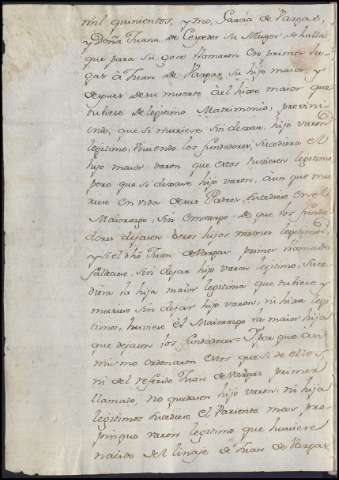 mil quinientos, y uno, Garcia de Vargas,
y Doña Juana de Cespedes su Muger, se halla
que para su goce llamaron en primer lu-
gar â Juan de Vargas su hijo maior, y
despues de su muerte al hijo maior que
tubiese de legitimo Matrimonio, previni-
endo, que si muriese sin dexar hijo varon
legitimo, viviendo los fundadores, sucediera el
hijo maior varon que estos tubiesen legitimo
pero que si dexase hijo varon, aun que mu-
riese en vida de sus Padres, sucediese en el
Maiorazgo, sin embargo de que los funda-
dores dejasen otros hijos varones legitimos,
y si el dho Juan de Vargas primer llamado
falleciese, sin dejar hijo varon legitimo, suce-
diera la hija maior legitima que tubiese y
muriese sin dejar hijo varon, ni hija legi-
timos, huviese el Maiorazgo la maior hija
que dejasen los fundadores. Y por que asi
mismo ordenaron estos que si de ellos
ni del referido Juan de Vargas primer
llamado, no quedasen hijo varon, ni hija
legitimos sucediese el Pariente mas pro-
pinquo varon legitimo que huviese
nacido del linage de Juan de Vargas